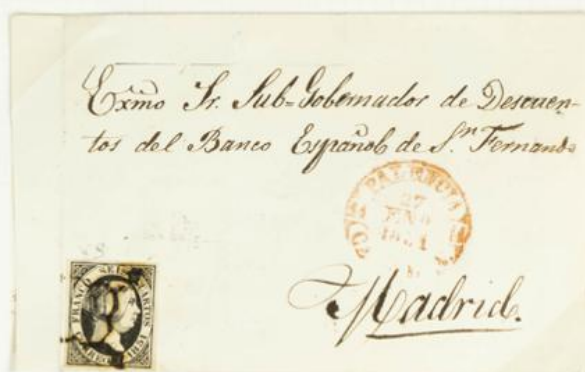 Exmo Sr. Sub=Gobernador de Descuen-
tos del Banco Español de Sn Fernando
PALENCIA
27
ENE
1851
Madrid.
FRANCO SEIS CUARTOS
CORREOS 1851